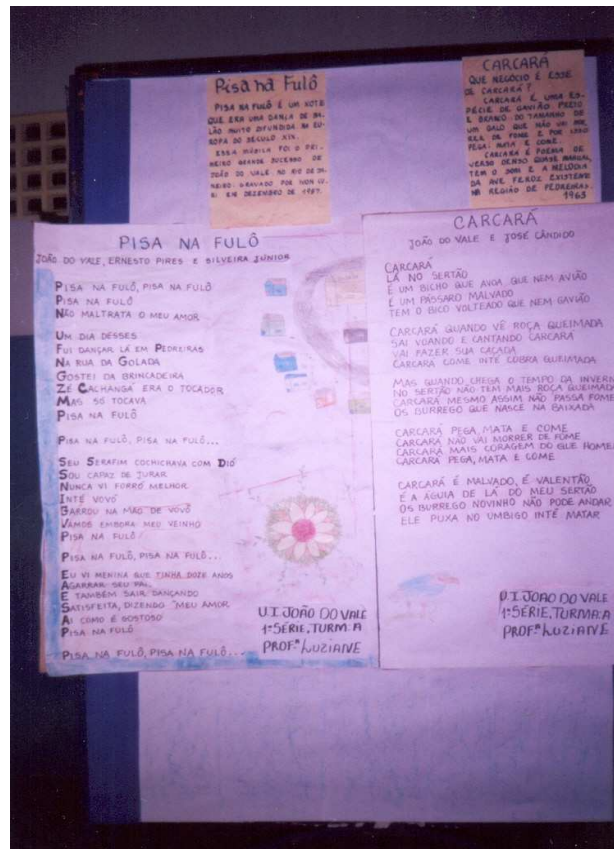 Pisa na Fulô
PISA NA FULÔ É UM XOTE
QUE ERA UMA DANÇA DE SA-
LÃO MUITO DIFUNDIDA NA EU-
ROPA DO SÉCULO XIX.
ESSA MÚSICA FOI O PRI-
MEIRO GRANDE SUCESSO DE
JOÃO DO VALE NO RIO DE JA-
NEIRO. GRAVADO POR IVON CU-
RI EM DEZEMBRO DE 1957.
CARCARÁ
QUE NEGÓCIO É ESSE
DE CARCARÁ?
CARCARÁ É UMA ES-
PÉCIE DE GAVIÃO. PRETO
E BRANCO. DO TAMANHO DE
UM GALO QUE NÃO VAI MOR-
RER DE FOME E POR ISSO
PEGA, MATA E COME.
CARCARÁ É POEMA DE
VERSO DENSO QUASE
TEM O SOM E A MELODIA
DA AVE FEROZ EXISTENTE
NA REGIÃO DE PEDREIRAS.
1963
PISA NA FULÔ
JOÃO DO VALE, ERNESTO PIRES E SILVEIRA JÚNIOR
PISA NA FULÔ, PISA NA FULÔ
PISA NA FULÔ
NÃO MALTRATA O MEU AMOR
UM DIA DESSES
FUI DANÇAR LÁ EM PEDREIRAS
NA RUA DA GOLADA
GOSTEI DA BRINCADEIRA
ZÉ CACHANGÁ ERA O TOCADOR
MAS SÓ TOCAVA
PISA NA FULÔ
PISA NA FULÔ, PISA NA FULÔ...
SEU SERAFIM COCHICHAVA COM DIÓ
SOU CAPAZ DE JURAR
NUNCA VI FORRÓ MELHOR
INTÉ VOVÓ
GARROU NA MÃO DE VOVÔ
VAMOS EMBORA MEU VEINHO
PISA NA FULÔ!
PISA NA FULÔ, PISA NA FULÔ...
EU VI MENINA QUE TINHA DOZE ANOS
AGARRAR SEU PAI
E TAMBÉM SAIR DANÇANDO
SATISFEITA, DIZENDO "MEU AMOR
AI COMO É GOSTOSO
PISA NA FULÔ
PISA NA FULÔ, PISA NA FULÔ...
U.I. JOÃO DO VALE
1ª SÉRIE, TURM: A
PROF.ª LUZIANE
CARCARÁ
JOÃO DO VALE E JOSÉ CÂNDIDO
CARCARÁ
LÁ NO SERTÃO
É UM BICHO QUE AVOA QUE NEM AVIÃO
É UM PÁSSARO MALVADO
TEM O BICO VOLTEADO QUE NEM GAVIÃO
CARCARÁ QUANDO VÊ ROÇA QUEIMADA
SAI VOANDO E CANTANDO CARCARÁ
VAI FAZER SUA CAÇADA
CARCARÁ COME INTÉ COBRA QUEIMADA
MAS QUANDO CHEGA O TEMPO DA INVERN
NO SERTÃO NÃO TEM MAIS ROÇA QUEIMADA
CARCARÁ MESMO ASSIM NÃO PASSA FOME
OS BURREGO QUE NASCE NA BAIXADA
CARCARÁ PEGA, MATA E COME
CARCARÁ NÃO VAI MORRER DE FOME
CARCARÁ MAIS CORAGEM DO QUE HOME
CARCARÁ PEGA, MATA E COME
CARCARÁ É MALVADO, É VALENTÃO
É A ÁGUIA DE LÁ DO MEU SERTÃO
OS BURREGO NOVINHO NÃO PODE ANDAR
ELE PUXA NO UMBIGO INTÉ MATAR
U.I. JOÃO DO VALE
1ª SÉRIE, TURMA: A
PROF.ª LUZIANE